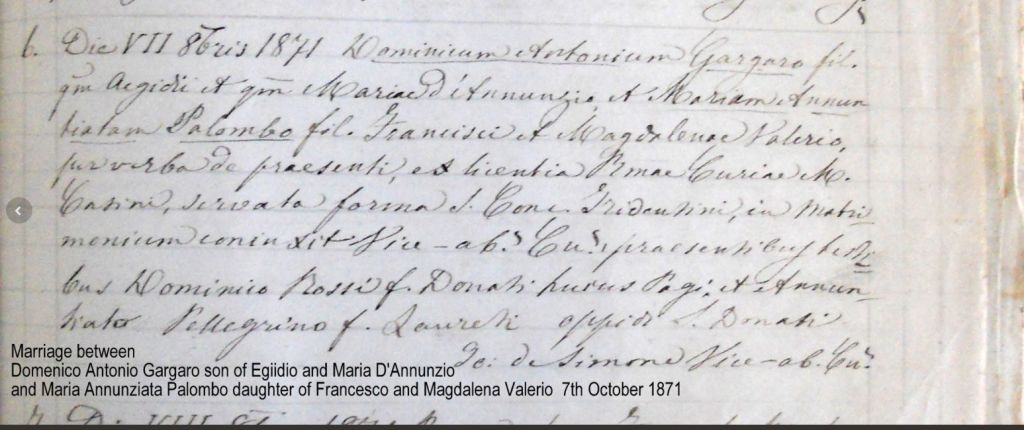 6. Die VII 8bris 1871 Dominicum Antonium Gargaro fil.
qm Aegidii et qm Mariae D'Annunzio, et Mariam Annun
tiatam Palombo fil. Francisci et Magdalenae Valerio,
per verba de praesenti, ex licentia Rmae Curiae M.
Casini, servata forma S. Conc. Tridentini, in matri
monium coniunxit Vice-ab.s Cu.s praesentibus testi
bus Dominico Rossi f. Donati huius Pagi, et Annun-
tiato Pellegrino f. Laureti oppidi S. Donati
de Simone Vice-ab. Cu.s
Marriage between
Domenico Antonio Gargaro son of Egiidio and Maria D'Annunzio
and Maria Annunziata Palombo daughter of Francesco and Magdalena Valerio 7th October 1871
7. Die VIII